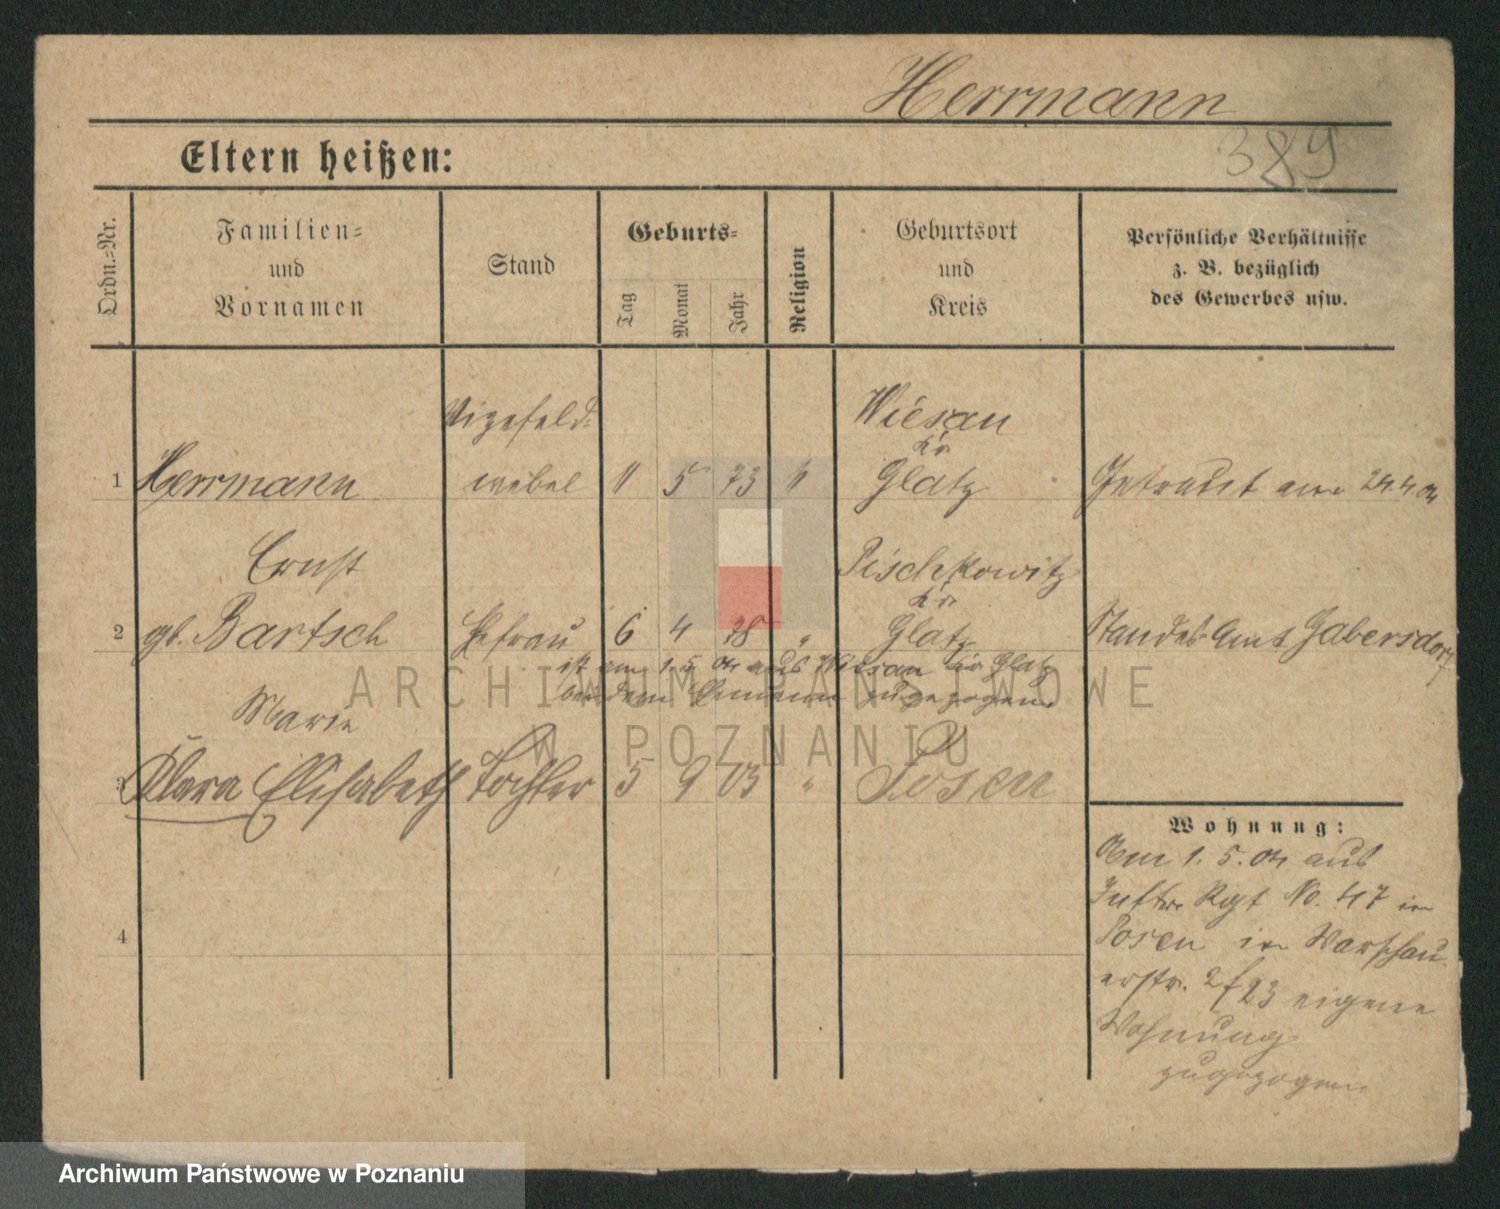 Herrmann
389
Eltern heißen:
Ordn.-Nr.
Familien-
und
Vornamen
Stand
Geburts-
Tag
Monat
Jahr
Religion
Geburtsort
und
Kreis
Persönliche Verhältnisse
z. B. bezüglich
des Gewerbes usw.
Vizefeld-
Wiesau
Kr
1 Herrmann webel 11 5 73 k Glatz Getraut am 24.4.04
Ernst
Pischkowitz
Kr
2 gb. Bartsch Ehefrau 6 4 78 " Glatz Standes Amt Gabersdorf
ist am 1.5.04 aus Wiesau Kr Glatz
bei dem Ehemann zugezogen.
Marie
3 Klara Elisabeth Tochter 5 9 03 " Posen
Wohnung:
Am 1. 5. 04 aus
Inftr. Rgt No. 47 in
Posen in Warschau
erstr. 2/23 eigene
Wohnung
zugezogen.
4
ARCHIWUM PAŃSTWOWE
W POZNANIU
Archiwum Państwowe w Poznaniu